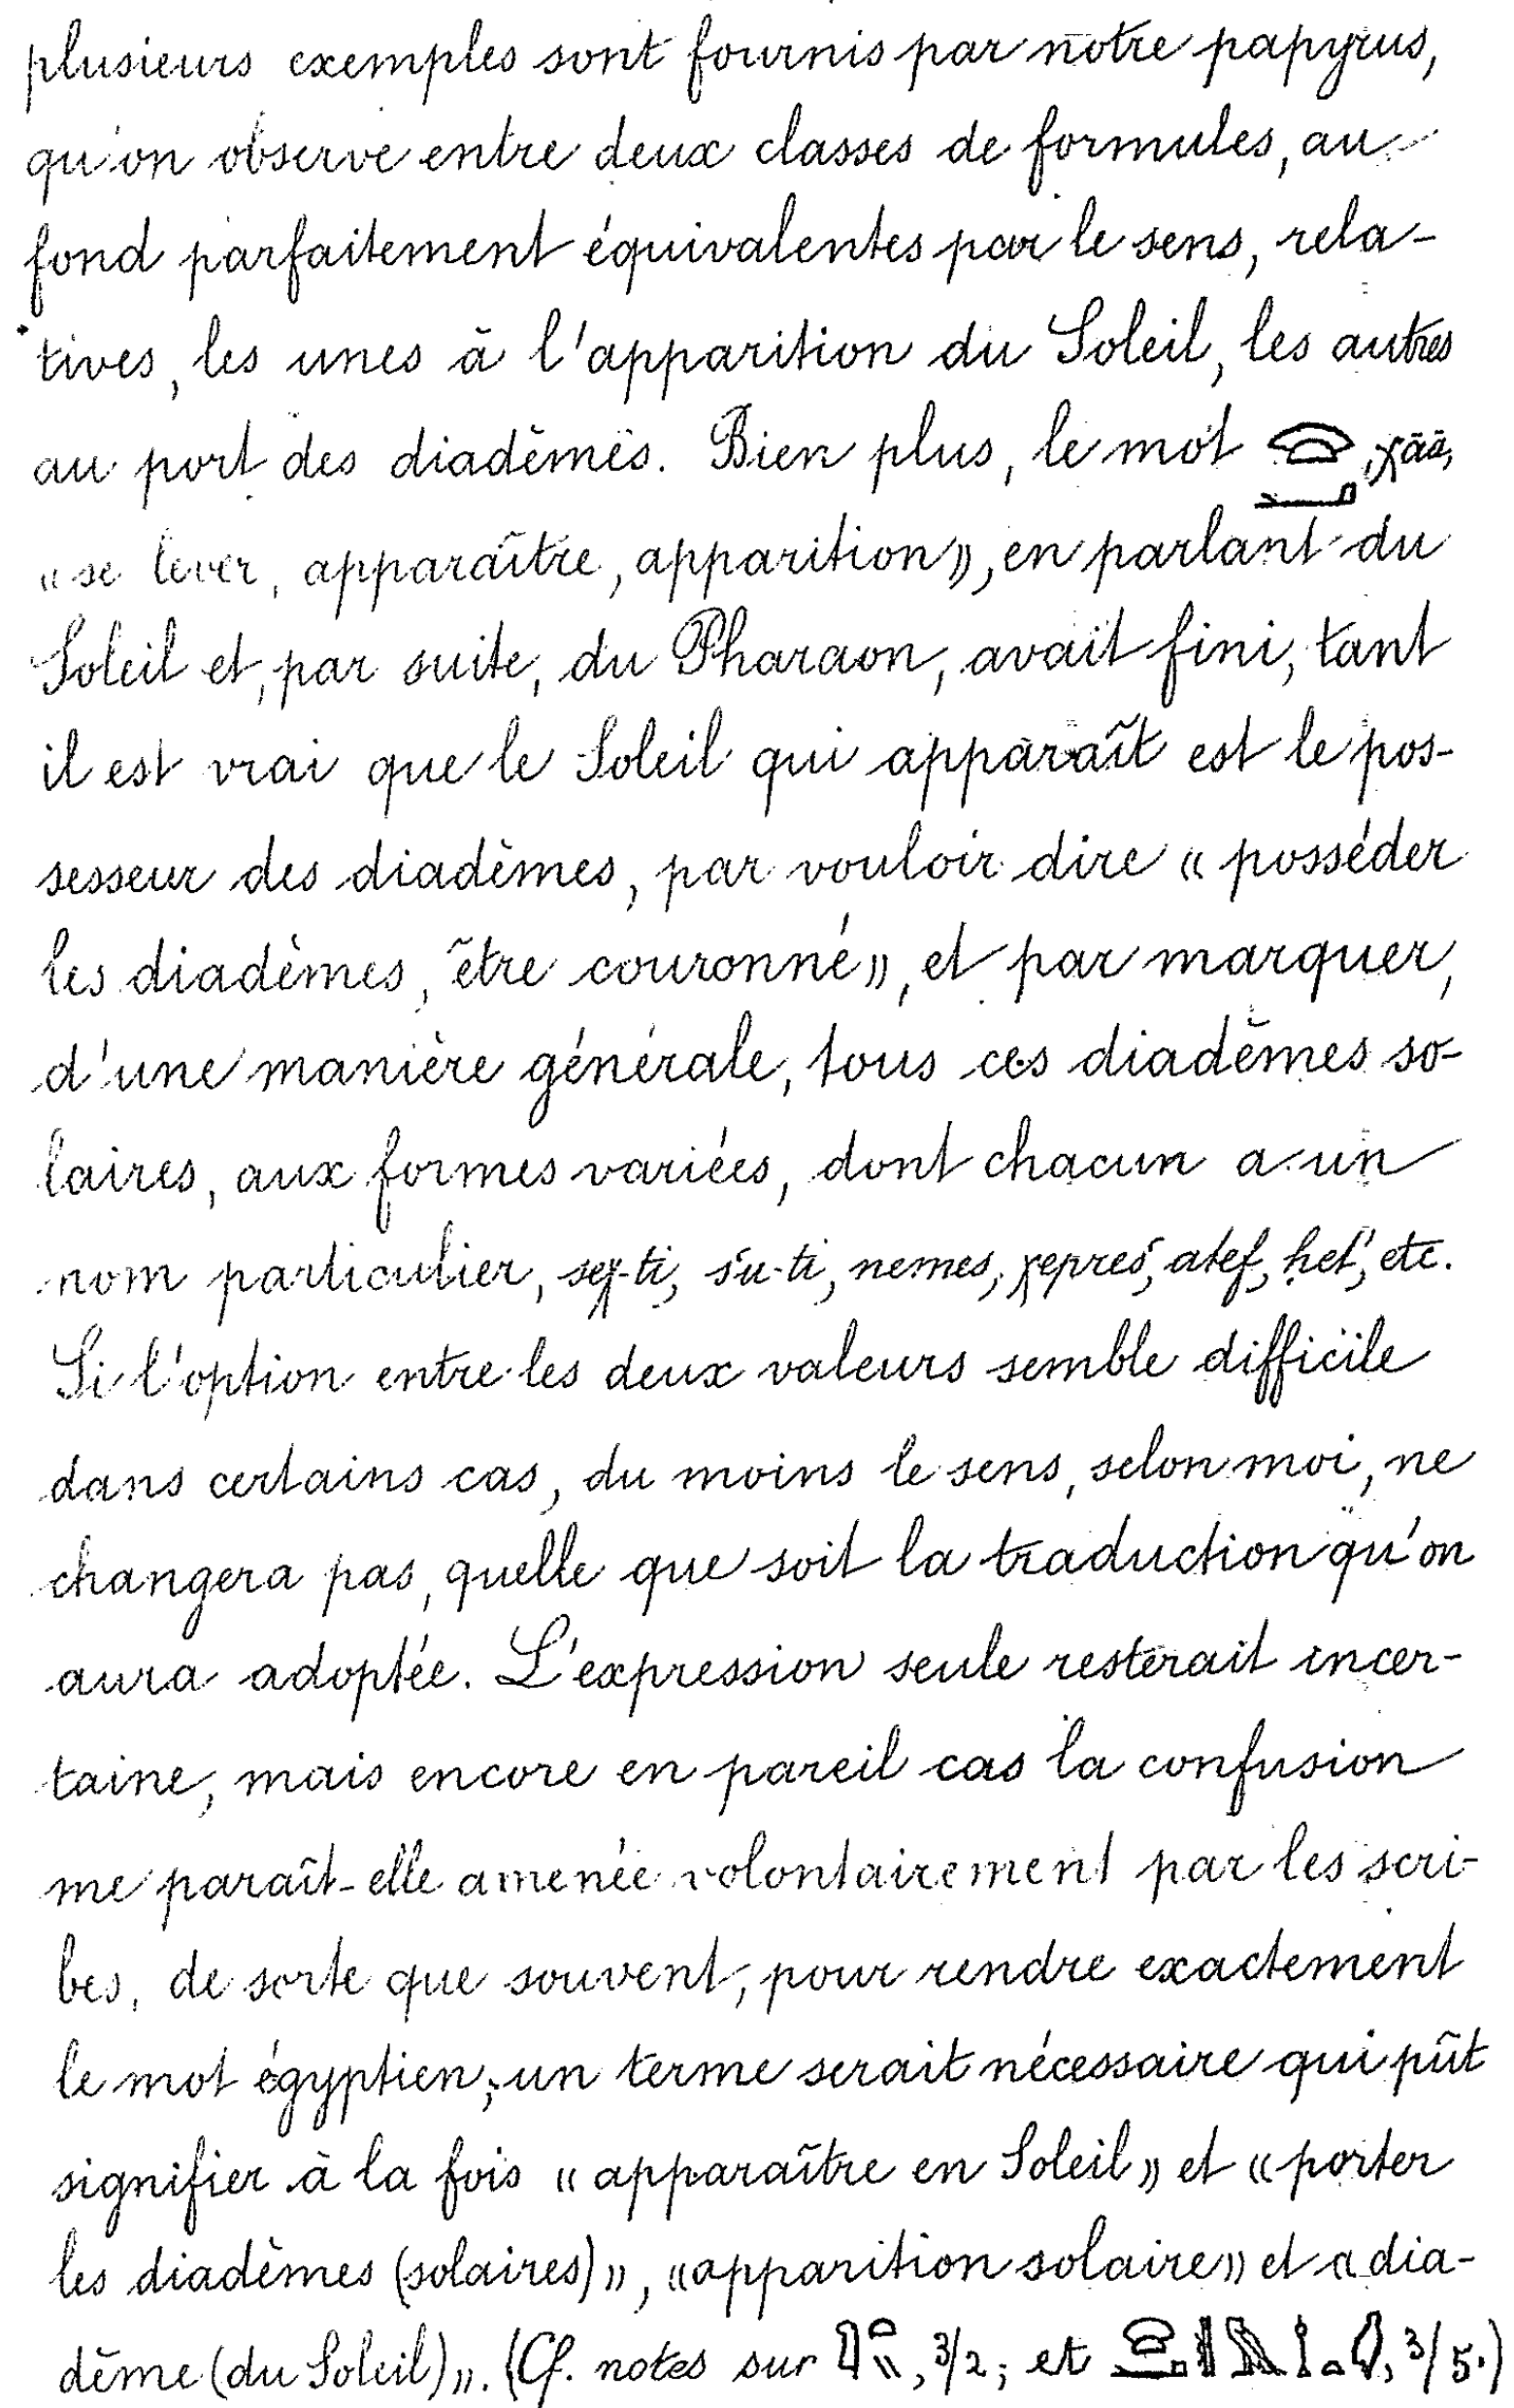 plusieurs exemples sont fournis par notre papyrus,
qu'on observe entre deux classes de formules, au
fond parfaitement équivalentes par le sens, rela-
tives, les unes à l'apparition du Soleil, les autres
au port des diadèmes. Bien plus, le mot 𓈍𓂝, χāā,
« se lever, apparaître, apparition », en parlant du
Soleil et, par suite, du Pharaon, avait fini, tant
il est vrai que le Soleil qui apparaît est le pos-
sesseur des diadèmes, par vouloir dire « posséder
les diadèmes, être couronné », et par marquer,
d'une manière générale, tous ces diadèmes so-
laires, aux formes variées, dont chacun a un
nom particulier, seχ-ti, s'u-ti, nemes, χepres', atef, ḥet', etc.
Si l'option entre les deux valeurs semble difficile
dans certains cas, du moins le sens, selon moi, ne
changera pas, quelle que soit la traduction qu'on
aura adoptée. L'expression seule resterait incer-
taine, mais encore en pareil cas la confusion
me paraît-elle amenée volontairement par les scri-
bes, de sorte que souvent, pour rendre exactement
le mot égyptien, un terme serait nécessaire qui pût
signifier à la fois « apparaître en Soleil » et « porter
les diadèmes (solaires) », « apparition solaire » et « dia-
dème (du Soleil) ». (Cf. notes sur , 3/2; et , 3/5.)